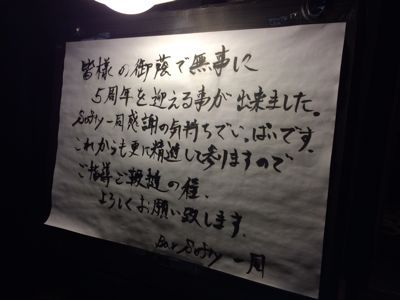 皆様の御蔭で無事に
5周年を迎える事が出来ました。
一同感謝の気持ちでいっぱいです。
これからも更に精進して参りますので
ご指導ご鞭撻の程、
よろしくお願い致します。
Bar 一同